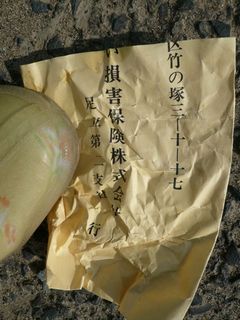 区竹の塚三-十-十七
損害保険株式会社
足立第一支 行